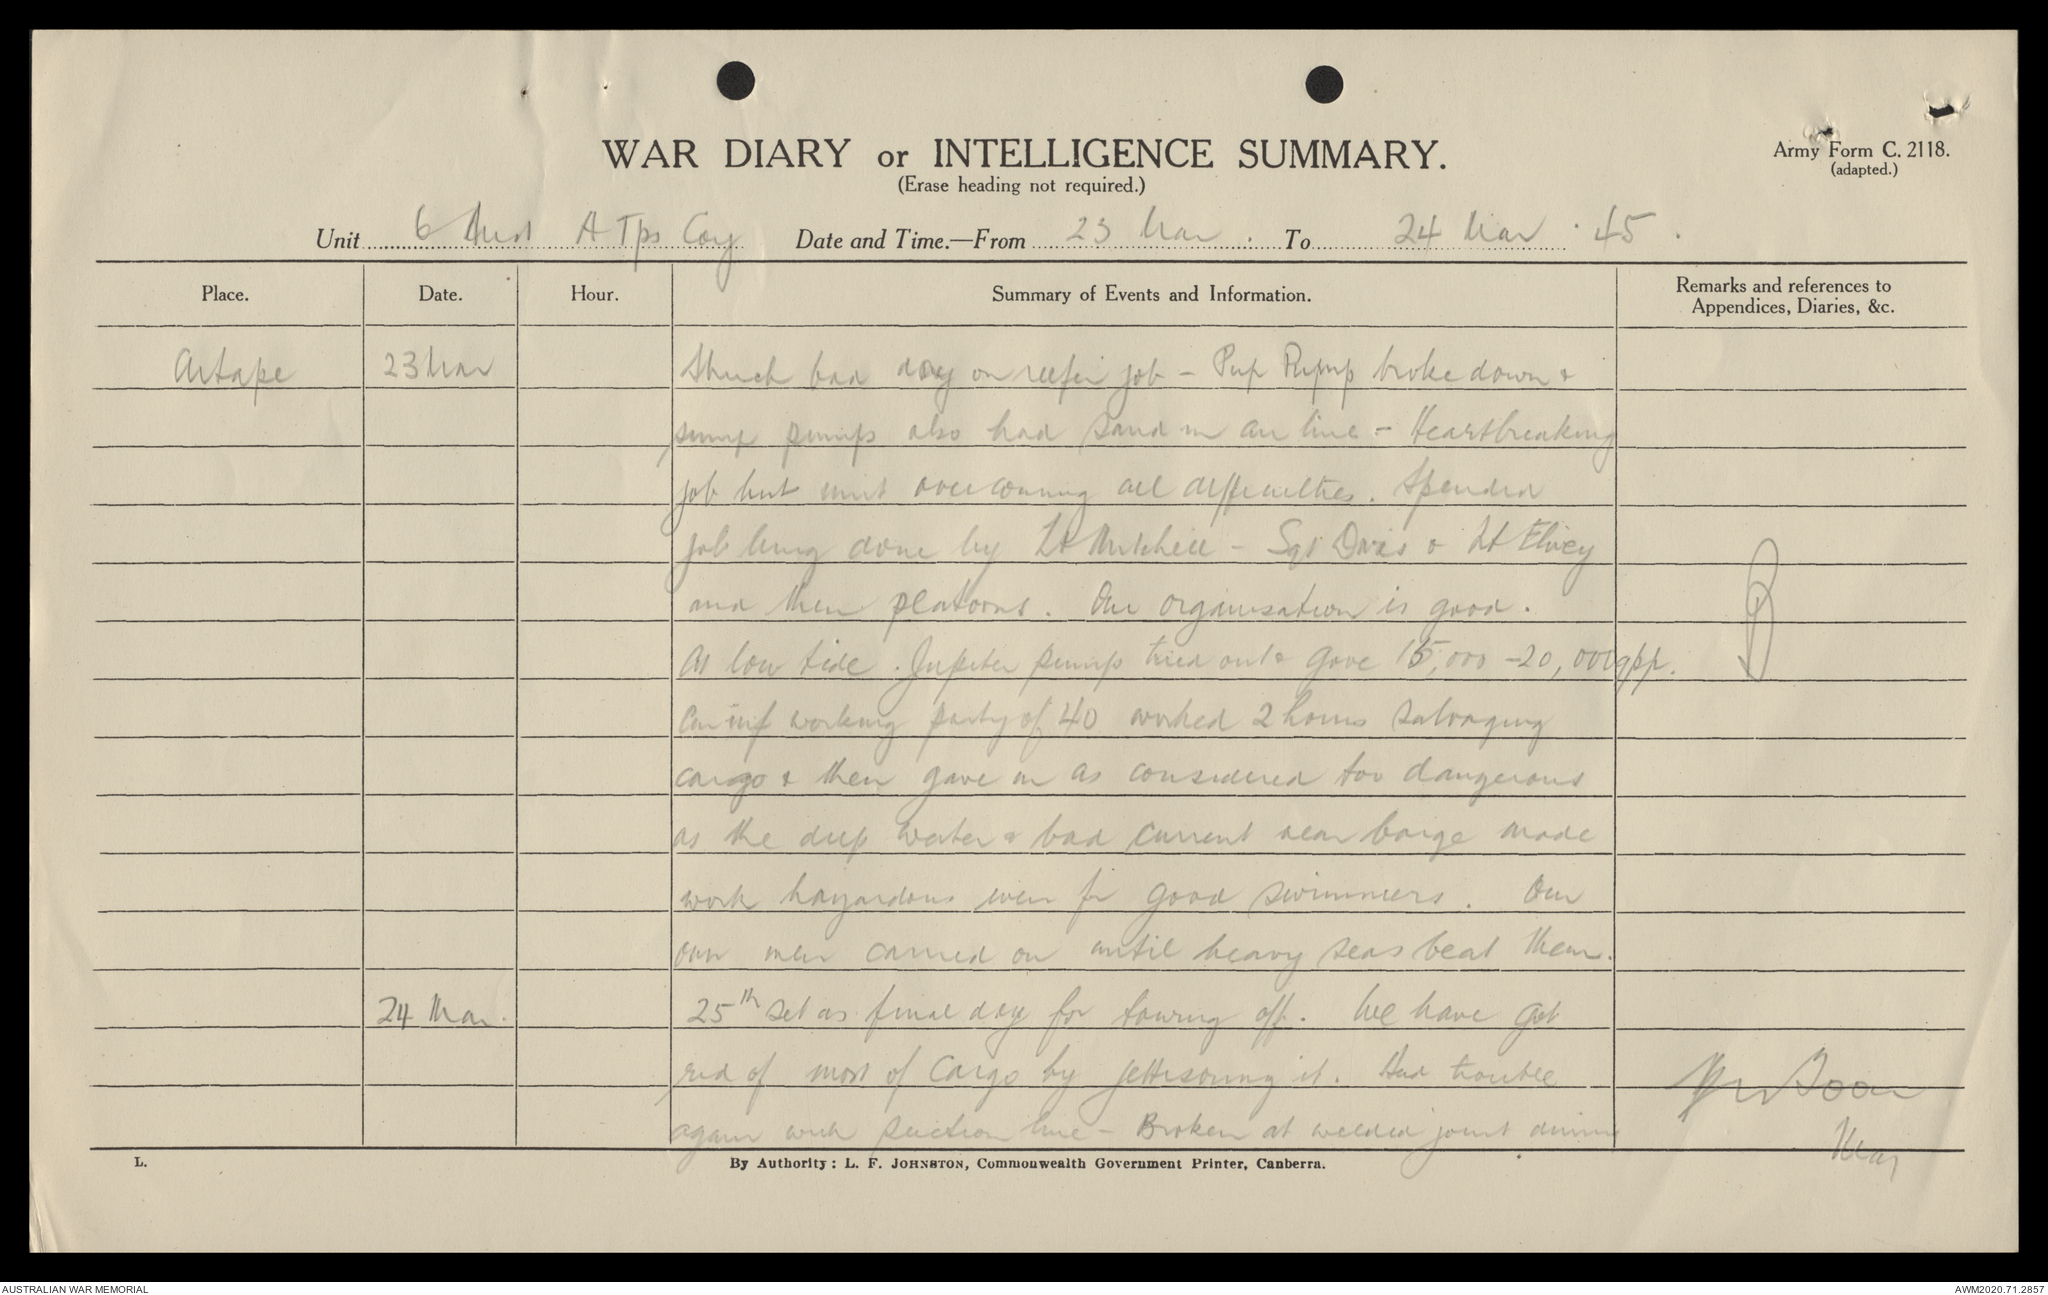 WAR DIARY or INTELLIGENCE SUMMARY.
(Erase heading not required.)
Army Form C. 2118.
(adapted.)
Unit 6 Aust A Tps Coy Date and Time.—From 23 Mar. To 24 Mar. 45.
Place. Date. Hour. Summary of Events and Information. Remarks and references to
Appendices, Diaries, &c.
Aitape 23 Mar Struck bad day on reefer job – Pump broke down &
pump also had sand in air line – Heartbreaking
job but unit overcoming all difficulties. Splendid
job being done by Lt Mitchell – Sgt & Lt
and their platoons. Our organisation is good.
At low tide. Jupiter pump tried out & gave 15,000 – 20,000
inf working party of 40 worked 2 hours salvaging
cargo & then gave in as considered too dangerous
as the deep water & bad current near barge made
work hazardous even for good swimmers. Our
own men carried on until heavy seas beat them.
24 Mar. 25th set as final day for towing off. We have got
rid of most of cargo by jettisoning it. Had trouble
again with suction line – Broken at welded joint during
Maj
L. By Authority: L. F. JOHNSTON, Commonwealth Government Printer, Canberra.
AUSTRALIAN WAR MEMORIAL AWM2020.71.2857